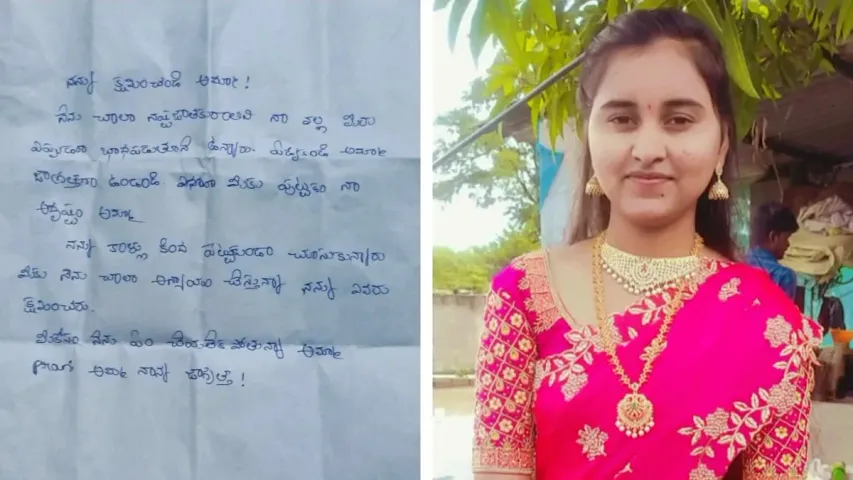 నన్ను క్షమించండి అమ్మా !
నేను చాలా నష్టజాతకురాలిని నా వల్ల మీరు
ఎప్పుడూ బాధపడుతూనే ఉన్నారు. ఏడ్వకండి అమ్మా
జాగ్రత్తగా ఉండండి మీకు పుట్టటం నా
అదృష్టం అమ్మా
నన్ను కాళ్లు కింద పెట్టకుండా చూసుకున్నారు
మీకు నేను చాలా అన్యాయం చేస్తున్నా నన్ను ఎవరు
క్షమించరు.
మీకోసం నేను ఏం చేయలేక పోతున్నా అమ్మా
అమ్మ నాన్న జాగ్రత్త !